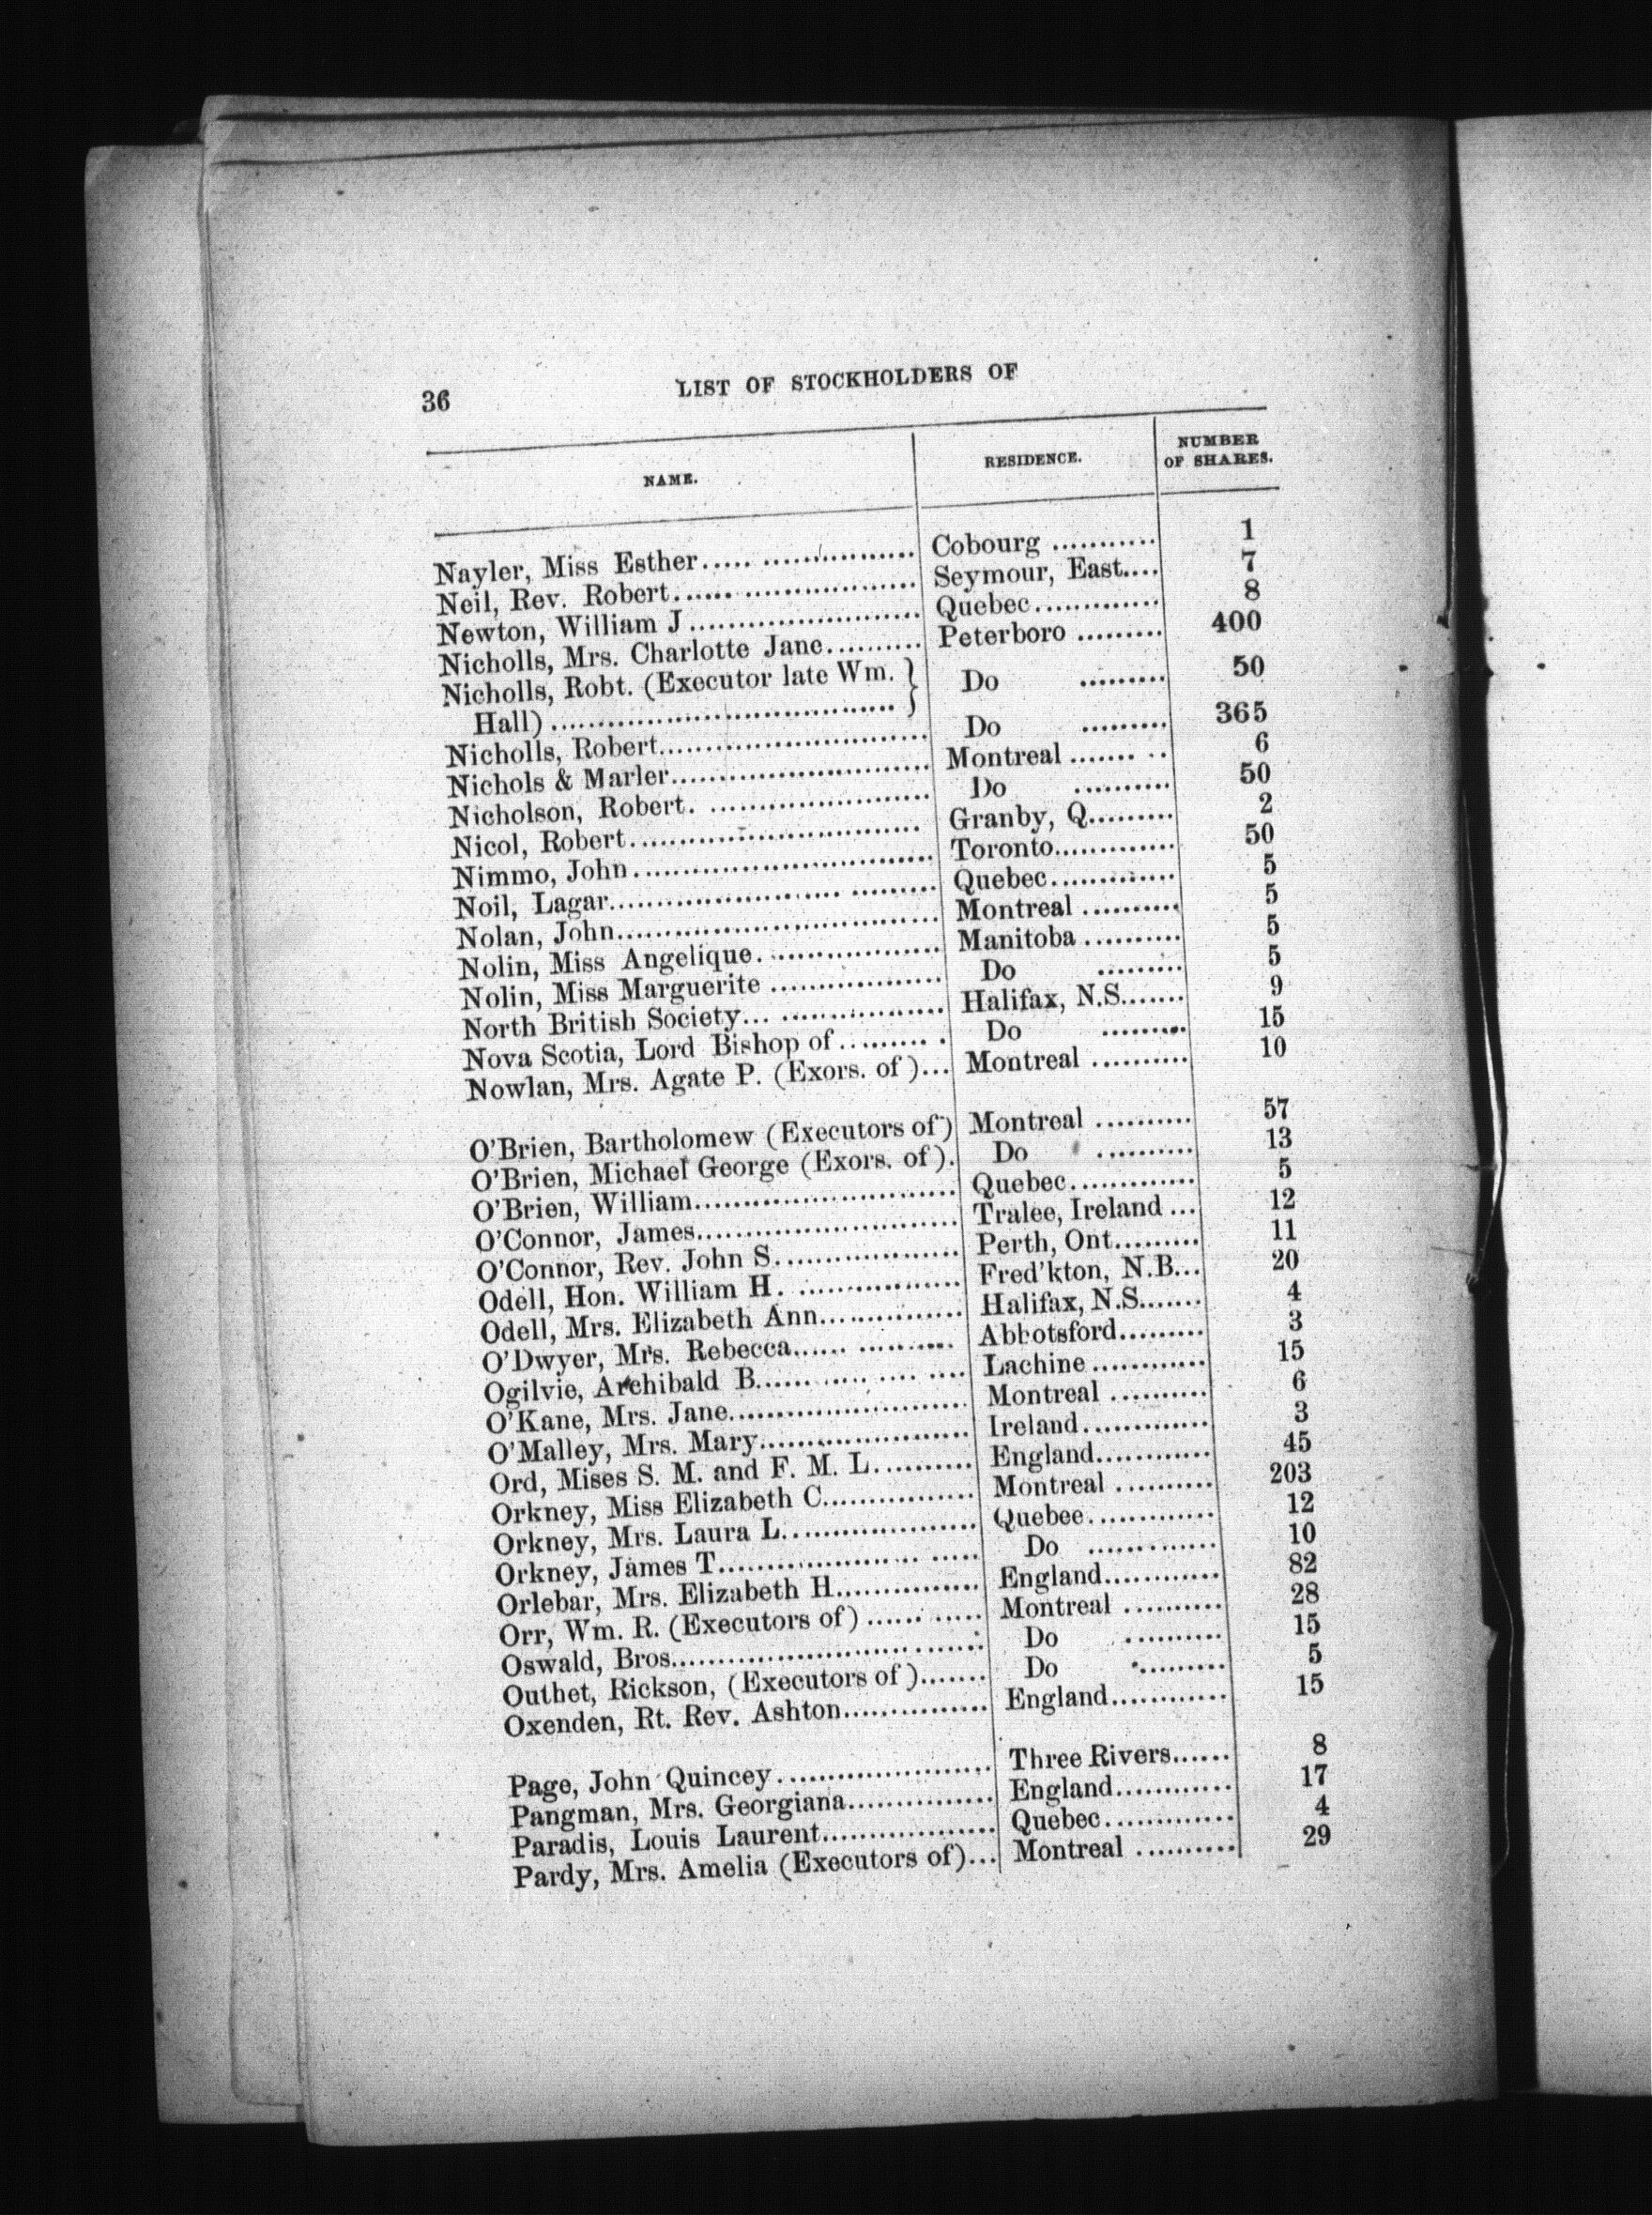 36 LIST OF STOCKHOLDERS OF
NAME. RESIDENCE. NUMBER OF SHARES.
Nayler, Miss Esther..... ................ Cobourg ........... 1
Neil, Rev. Robert...... .................. Seymour, East.... 7
Newton, William J ........................ Quebec............. 8
Nicholls, Mrs. Charlotte Jane.......... Peterboro ......... 400
Nicholls, Robt. (Executor late Wm. } Do ......... 50
Hall) ...................................
Nicholls, Robert............................ Do ......... 365
Nichols & Marler........................... Montreal ....... .. 6
Nicholson, Robert. ....................... Do .......... 50
Nicol, Robert.............................. Granby, Q......... 2
Nimmo, John ............................... Toronto............. 50
Noil, Lagar........................ ......... Quebec............. 5
Nolan, John................................. Montreal .......... 5
Nolin, Miss Angelique. ................. Manitoba .......... 5
Nolin, Miss Marguerite .................. Do ......... 5
North British Society... ................. Halifax, N.S....... 9
Nova Scotia, Lord Bishop of ......... . Do ......... 15
Nowlan, Mrs. Agate P. (Exors. of )... Montreal .......... 10
O'Brien, Bartholomew (Executors of) Montreal .......... 57
O'Brien, Michael George (Exors. of ). Do .......... 13
O'Brien, William........................... Quebec............. 5
O'Connor, James........................... Tralee, Ireland ... 12
O'Connor, Rev. John S................... Perth, Ont......... 11
Odell, Hon. William H. ................. Fred'kton, N.B... 20
Odell, Mrs. Elizabeth Ann............... Halifax, N.S....... 4
O'Dwyer, Mrs. Rebecca...... .......... Abbotsford......... 3
Ogilvie, Archibald B...... ..... .... .... Lachine ............ 15
O'Kane, Mrs. Jane........................ Montreal .......... 6
O'Malley, Mrs. Mary..................... Ireland............. 3
Ord, Mises S. M. and F. M. L.......... England............ 45
Orkney, Miss Elizabeth C................ Montreal .......... 203
Orkney, Mrs. Laura L.................... Quebee............. 12
Orkney, James T..................... ..... Do ............. 10
Orlebar, Mrs. Elizabeth H............... England............ 82
Orr, Wm. R. (Executors of) ...... ..... Montreal .......... 28
Oswald, Bros................................ Do .......... 15
Outhet, Rickson, (Executors of )....... Do .......... 5
Oxenden, Rt. Rev. Ashton............... England............ 15
Page, John Quincey ...................... Three Rivers...... 8
Pangman, Mrs. Georgiana............... England............ 17
Paradis, Louis Laurent.................. Quebec............. 4
Pardy, Mrs. Amelia (Executors of)... Montreal .......... 29